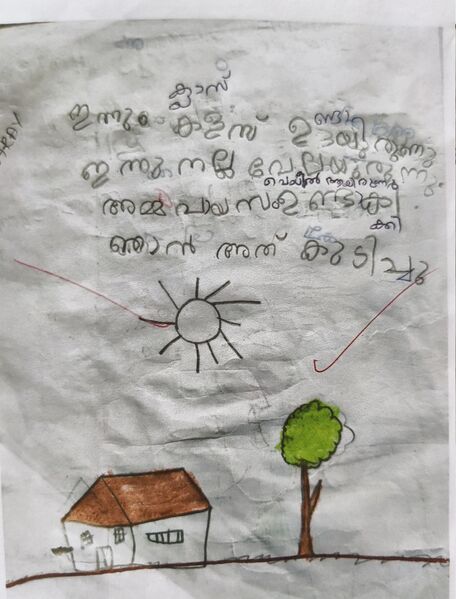 ക്ലാസ്
ഇന്നും കളസ് ഉണ്ടായിരുന്നു
ഇന്നു നല്ല വേലയുരുന്നു.
വെയിൽ ആയിരുന്നു
അമ്മ പായസം ഉണ്ടാക്കി
ക്കി
ഞാൻ അത് കുടിച്ചു